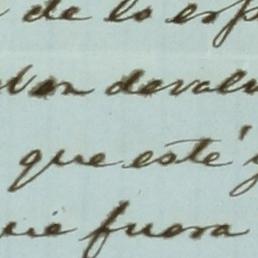 de lo esp
den devalu
que esté y
ué fuera